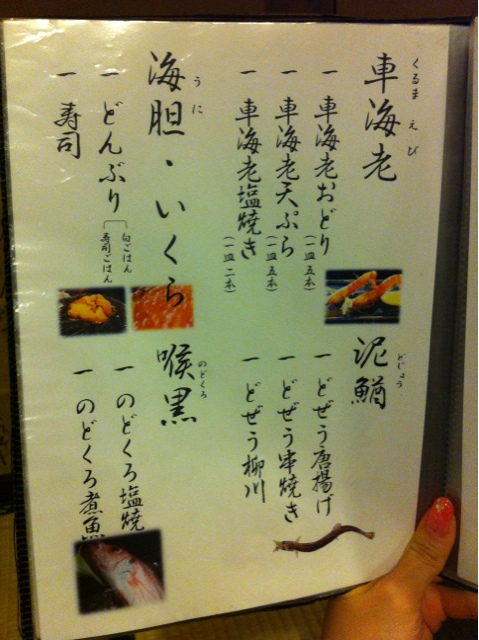 くるまえび
車海老
一 車海老おどり(一皿五本)
一 車海老天ぷら(一皿五本)
一 車海老塩焼き(一皿二本)
うに
海胆・いくら
一 どんぶり
白ごはん
寿司ごはん
一 寿司
どじょう
泥鰌
一 どぜう唐揚げ
一 どぜう串焼き
一 どぜう柳川
のどくろ
喉黒
一 のどくろ塩焼
一 のどくろ煮魚